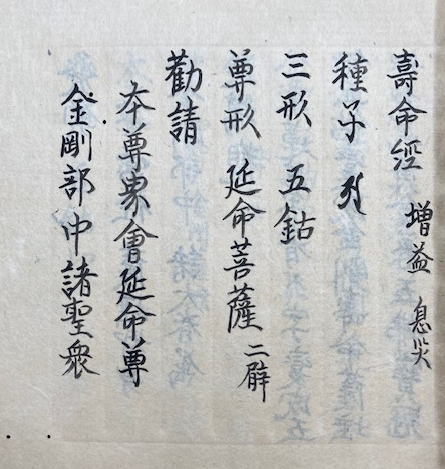 壽命經 增益 息災
種子
三形 五鈷
尊形 延命菩薩 二臂
勸請
本尊界會延命尊
金剛部中諸聖衆